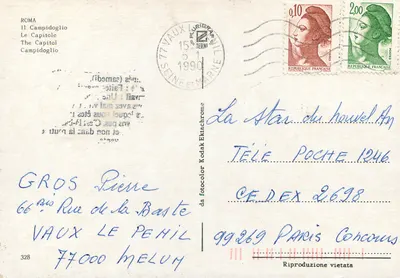 ROMA
Il Campidoglio
Le Capitole
The Capitol
Campidoglio
77 VAUX
15
1
1990
SEINE-ET-MARNE
0,10
2,00
da fotocolor Kodak Ektachrome
La Star du nouvel An
TÉLÉ POCHE 1246
CEDEX 2698
99269 PARIS Concours
GROS Pierre
66 Bis Rue de la Baste
VAUX LE PENIL
77000 MELUN
328
Riproduzione vietata